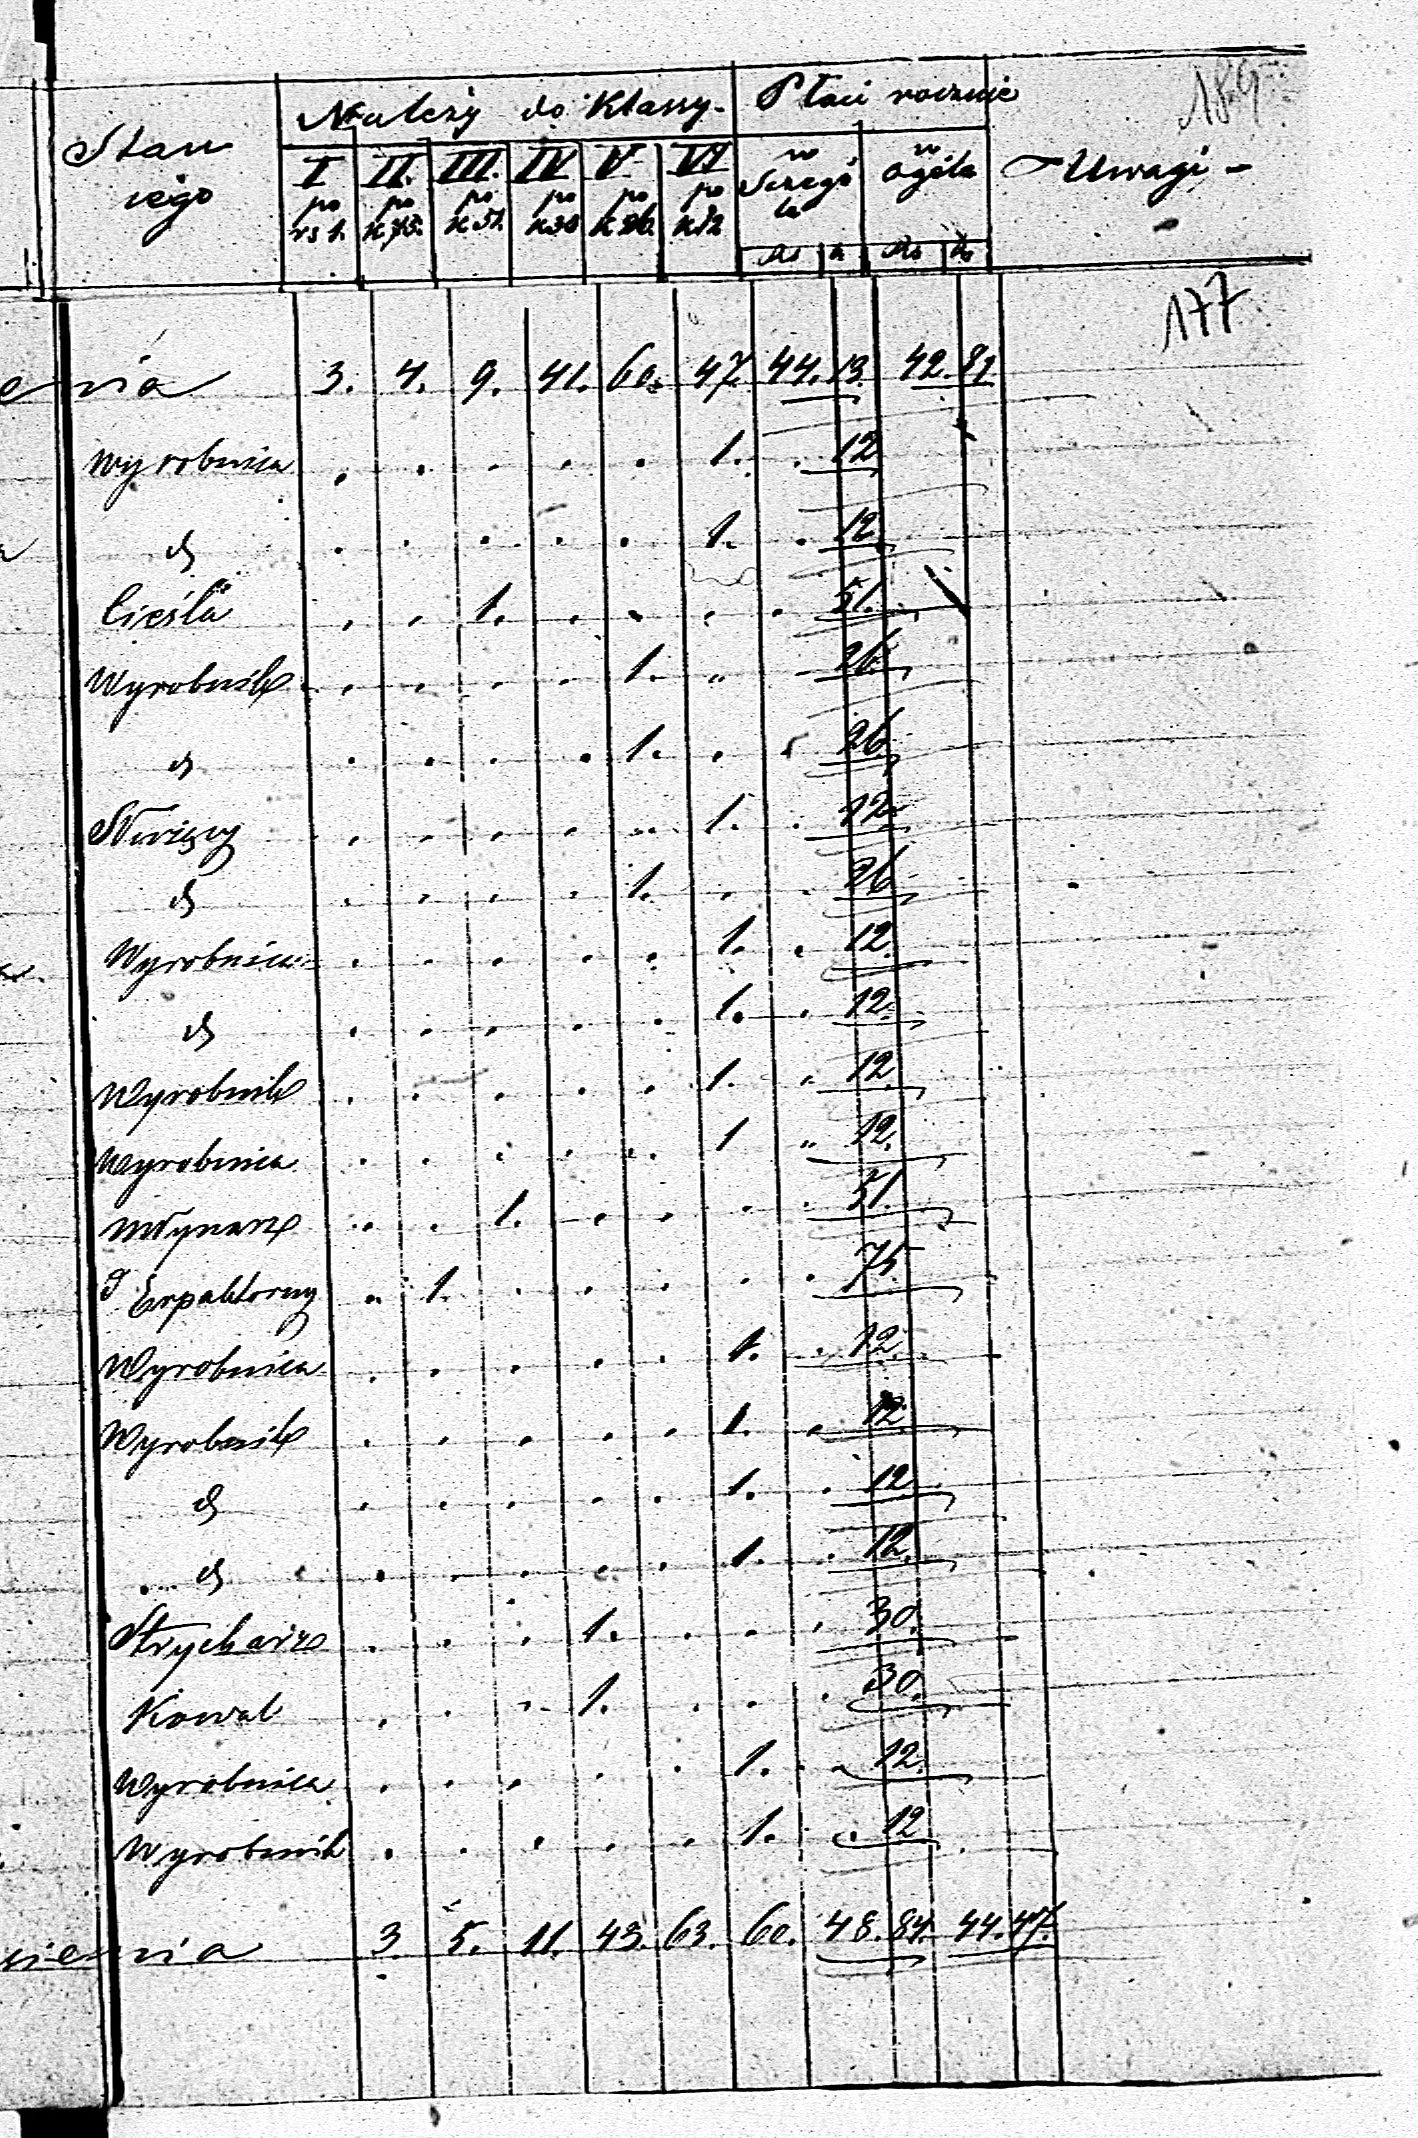 189
Stan Należy do Klassy. Płaci rocznie
iego I II. III. IV V VI w Szczegó w ogóle Uwagi -
po po po po po po ła
rs 1. k 75. k 51. k 30 k 26. k 12 Rs k Rs k
177
nia 3. 4. 9. 41. 60. 47 44. 13. 42. 81
Wyrobnica . . . . . 1. . 12
d . . . . . 1. . 12
Cieśla . . 1. . . . . 51.
Wyrobnik . . . . 1. " 26
d . . . . 1. . . 26
Służący . . . . . 1. . 12
d . . . . 1. . . 26
Wyrobnica . . . . . 1. . 12
d . . . . . 1. . 12
Wyrobnik . . . . . 1. . 12
Wyrobnica . . . . . 1 " 12.
Młynarz . . 1. . . . . 51.
Expaktorny . 1. . . . . . 75.
Wyrobnica . . . . . 1. . 12.
Wyrobnik . . . . . 1. . 12
d . . . . . 1. . 12
d . . . . . 1. . 12.
Strycharz . . . 1. . . . 30.
Kowal . . . 1. . . . 30.
Wyrobnica . . . . . 1. . 12.
Wyrobnik . . . . . 1. . 12
nia 3. 5. 11. 43. 63. 60. 48. 84. 44. 47.